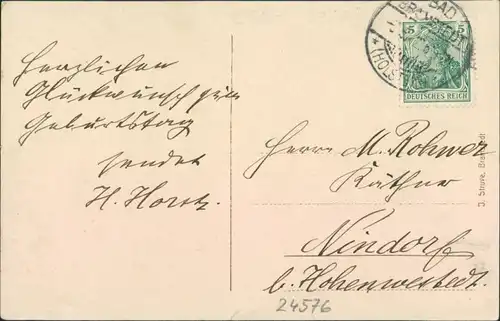 Herzlichen
Glückwunsch zum
Geburtstag
sendet
H. Horst.
BAD
BRAMSTEDT
(HOLSTEIN)
5 5
DEUTSCHES REICH
Herrn M. Rohwer
Käthner
Nindorf
b. Hohenwestedt.
J. Struve, Bramstedt
24576